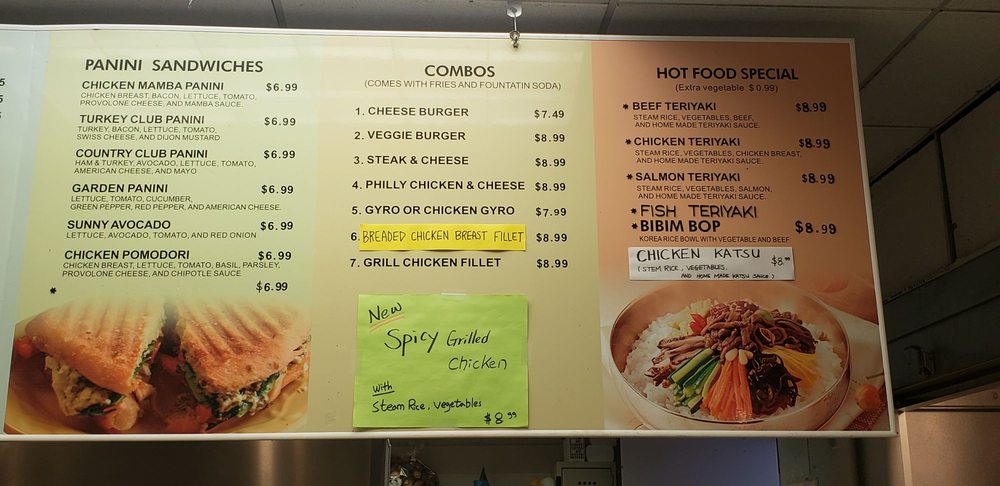 5
5
PANINI SANDWICHES
CHICKEN MAMBA PANINI $6.99
CHICKEN BREAST, BACON, LETTUCE, TOMATO,
PROVOLONE CHEESE, AND MAMBA SAUCE.
TURKEY CLUB PANINI $6.99
TURKEY, BACON, LETTUCE, TOMATO,
SWISS CHEESE, AND DIJON MUSTARD
COUNTRY CLUB PANINI $6.99
HAM & TURKEY, AVOCADO, LETTUCE, TOMATO,
AMERICAN CHEESE, AND MAYO
GARDEN PANINI $6.99
LETTUCE, TOMATO, CUCUMBER,
GREEN PEPPER, RED PEPPER, AND AMERICAN CHEESE.
SUNNY AVOCADO $6.99
LETTUCE, AVOCADO, TOMATO, AND RED ONION
CHICKEN POMODORI $6.99
CHICKEN BREAST, LETTUCE, TOMATO, BASIL, PARSLEY,
PROVOLONE CHEESE, AND CHIPOTLE SAUCE
* $6.99
COMBOS
(COMES WITH FRIES AND FOUNTATIN SODA)
1. CHEESE BURGER $7.49
2. VEGGIE BURGER $8.99
3. STEAK & CHEESE $8.99
4. PHILLY CHICKEN & CHEESE $8.99
5. GYRO OR CHICKEN GYRO $7.99
6. BREADED CHICKEN BREAST FILLET $8.99
7. GRILL CHICKEN FILLET $8.99
New
Spicy Grilled
Chicken
with
Steam Rice, Vegetables
$8.99
HOT FOOD SPECIAL
(Extra vegetable $0.99)
* BEEF TERIYAKI $8.99
STEAM RICE, VEGETABLES, BEEF,
AND HOME MADE TERIYAKI SAUCE.
* CHICKEN TERIYAKI $8.99
STEAM RICE, VEGETABLES, CHICKEN BREAST,
AND HOME MADE TERIYAKI SAUCE.
* SALMON TERIYAKI $8.99
STEAM RICE, VEGETABLES, SALMON,
AND HOME MADE TERIYAKI SAUCE.
* FISH TERIYAKI
* BIBIM BOP $8.99
KOREA RICE BOWL WITH VEGETABLE AND BEEF
CHICKEN KATSU $8.99
(STEM RICE, VEGETABLES,
AND HOME MADE KATSU SAUCE)